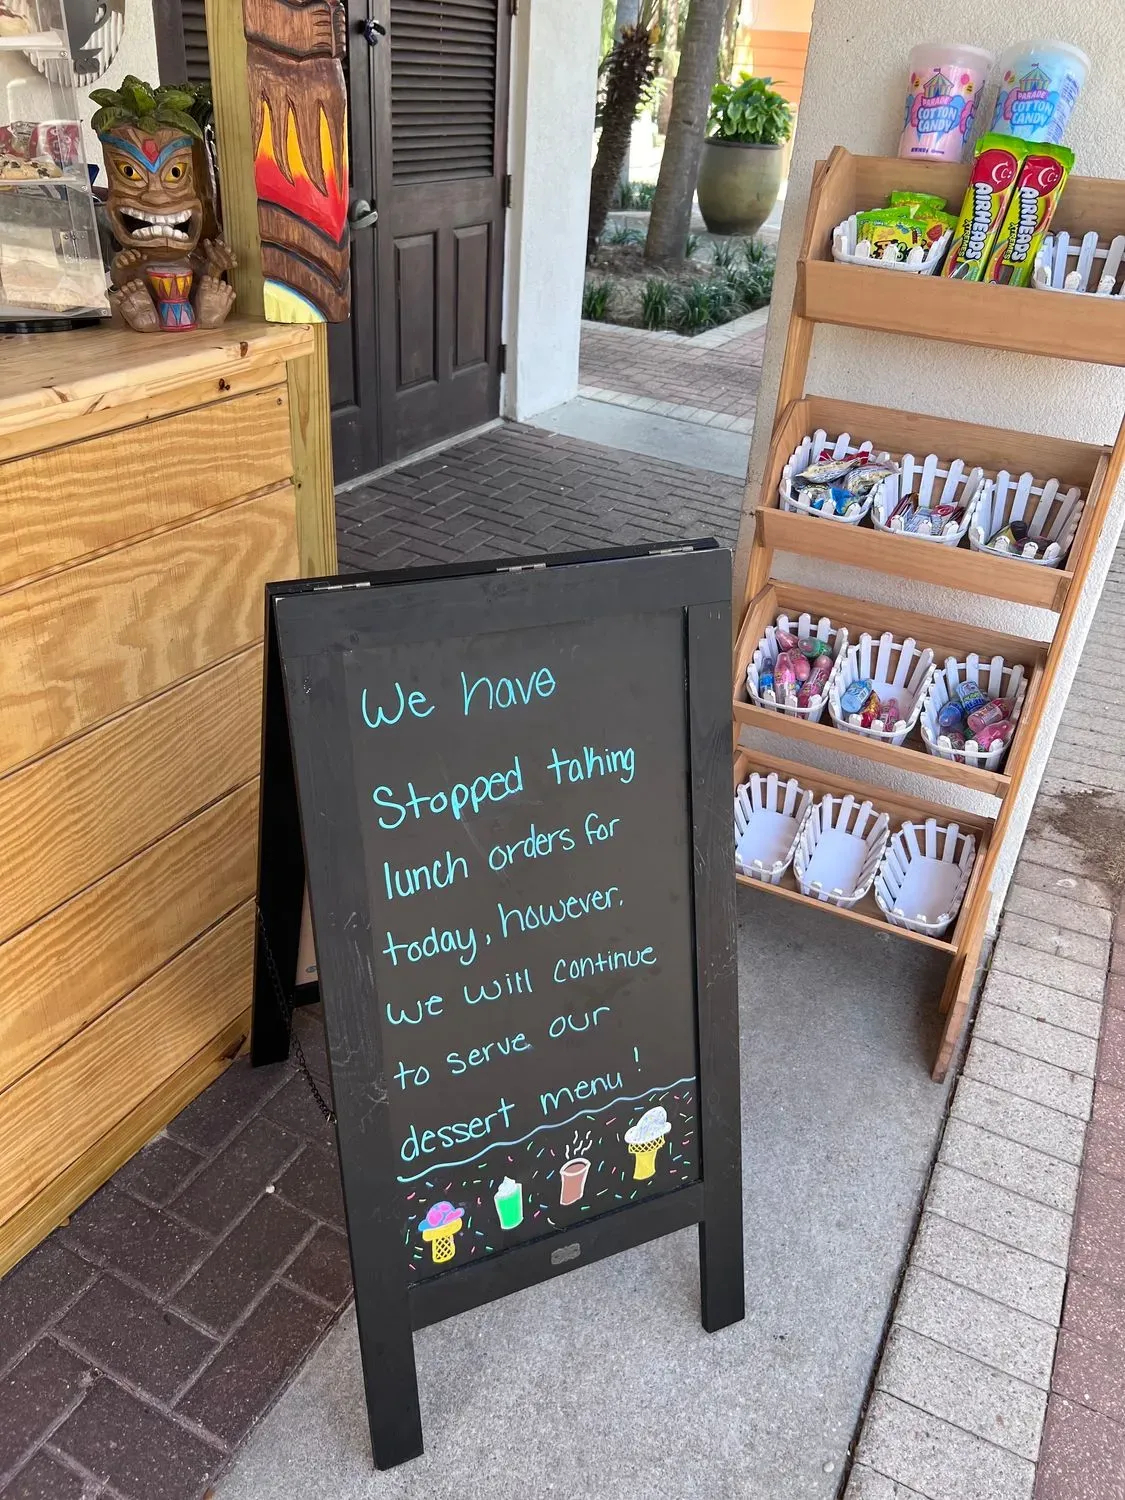 PARADE
COTTON
CANDY
PARADE
COTTON
CANDY
AIRHEADS
XTREMES
AIRHEADS
XTREMES
We have
Stopped taking
lunch orders for
today, however,
we will continue
to serve our
dessert menu!